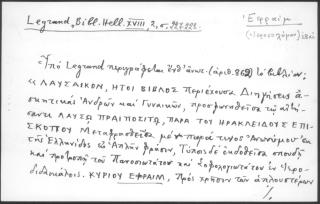 Legrand, Bibl. Hell. XVIII, 2, σ. 221-222.
Ἐφραὶμ
(Ἱεροσολύμων)
Ὑπὸ Legrand περιγράφεται ἐνθ' ἀνωτ. (ἀριθ. 862) τὸ βιβλίον:
«ΛΑΥΣΑΪΚΟΝ, ΗΤΟΙ ΒΙΒΛΟΣ περιέχουσα Διηγήσεις ἀ-
σκητικαὶ Ἀνδρῶν καὶ Γυναικῶν, προσφωνηθεῖσα τῷ αἰτή-
σαντι ΛΑΥΣΩ ΠΡΑΙΠΟΣΙΤΩ, ΠΑΡΑ ΤΟΥ ΗΡΑΚΛΕΙΔΟΥΣ ΕΠΙ-
ΣΚΟΠΟΥ Μεταφρασθεῖσα μὲν παρά τινος Ἀνωνύμου ἐκ
τῆς Ἑλληνίδος εἰς Ἁπλῆν φράσιν, Τύποις δὲ ἐκδοθεῖσα σπουδῇ
καὶ προτροπῇ τοῦ Πανοσιωτάτου καὶ Σοφολογιωτάτου ἐν Ἱερο-
διδασκάλοις ΚΥΡΙΟΥ ΕΦΡΑΙΜ, πρὸς χρῆσιν τῶν ἁπλουστέρων